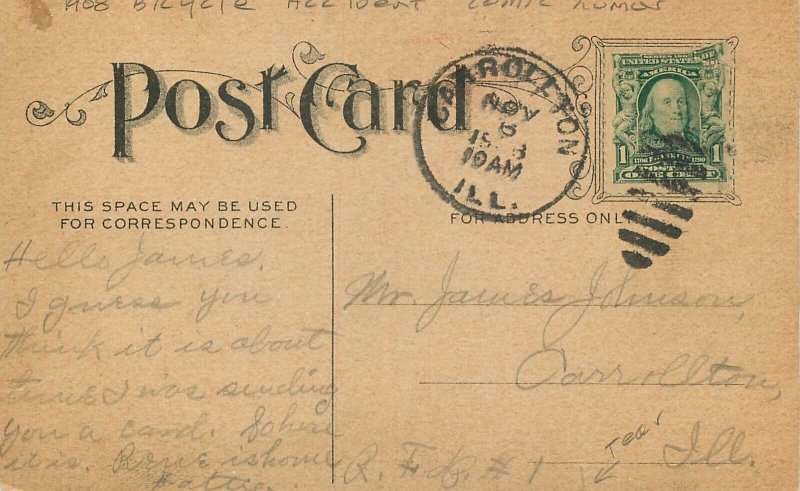 1908 BICYCLE ACCIDENT COMIC HUMOR
Post Card
CARROLLTON
NOV
6
1908
10AM
ILL.
SERIES 1902
UNITED STATES OF
AMERICA
1 1706 FRANKLIN 1790 1
POSTAGE
ONE CENT
THIS SPACE MAY BE USED
FOR CORRESPONDENCE.
FOR ADDRESS ONLY
Hello James.
I guess you
think it is about
time I was sending
you a card. So here
it is. Rene is home
Hattie
Mr. James Johnson,
Carrollton,
Ill.
R. F. D. # 1